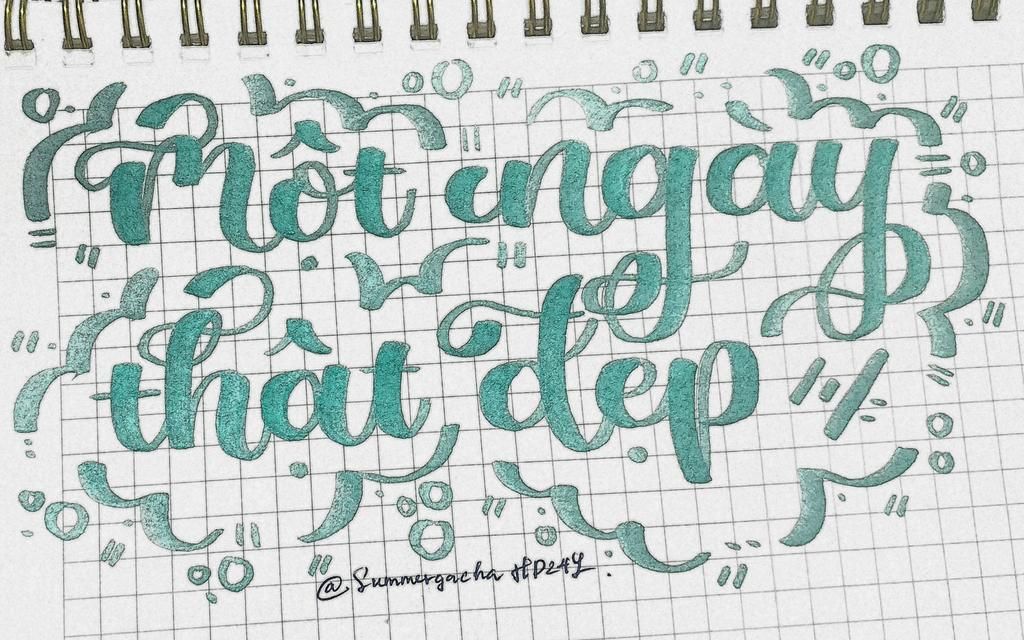 một ngày
thật đẹp
@SummergachaHD24Y.